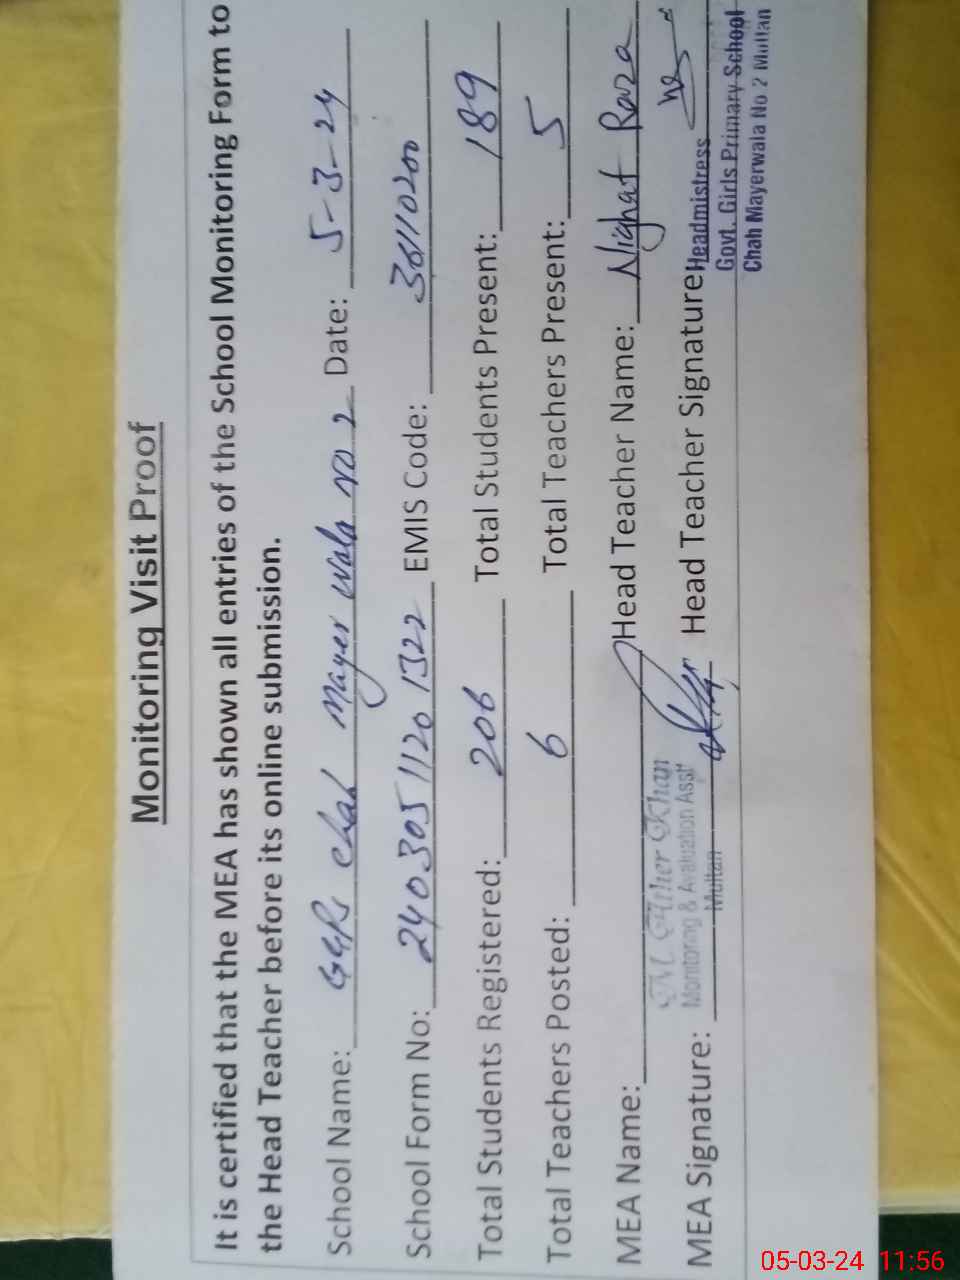 Monitoring Visit Proof
It is certified that the MEA has shown all entries of the School Monitoring Form to
the Head Teacher before its online submission.
School Name: GGPS Chah Mayer Wala No 2 Date: 5-3-24
School Form No: 240305 1120 1322 EMIS Code: 36110200
Total Students Registered: 206 Total Students Present: 189
Total Teachers Posted: 6 Total Teachers Present: 5
MEA Name: Head Teacher Name: Nighat Raza
M. Ather Khan
Monitoring & Evaluation Asst
Multan
MEA Signature: Head Teacher Signature:
Headmistress
Govt. Girls Primary School
Chah Mayerwala No 2 Multan
05-03-24 11:56